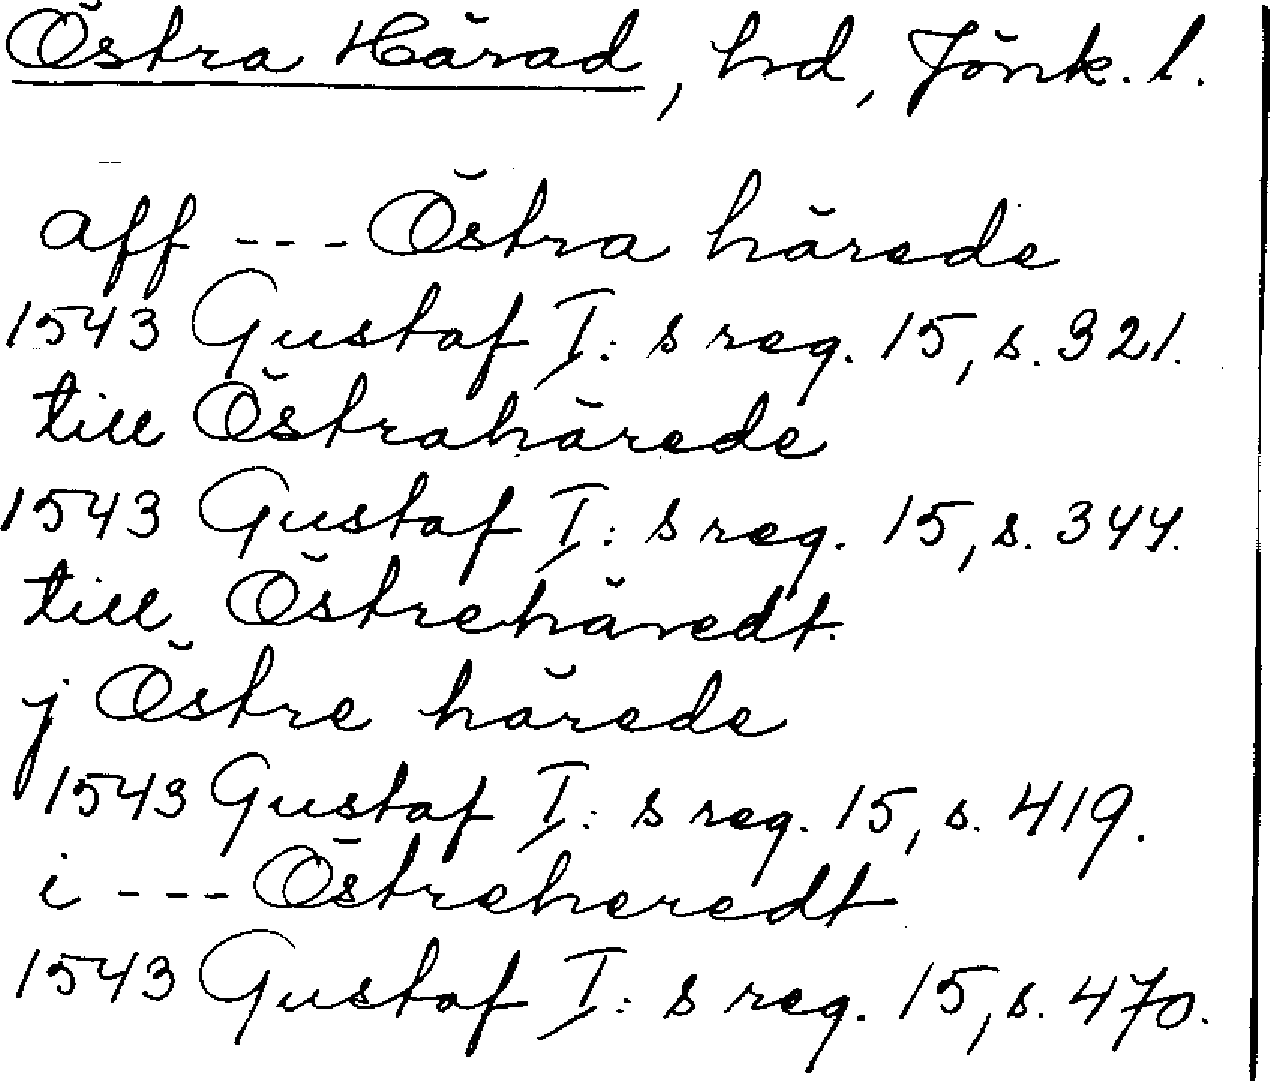 Östra Härad, hd, Jönk. l.
aff --- Östra härede
1543 Gustaf I: s reg. 15, s. 321.
till Östrahärede
1543 Gustaf I: s reg. 15, s. 344.
till Östrehäredt.
j Östre härede
1543 Gustaf I: s reg. 15, s. 419.
i --- Östreheredt
1543 Gustaf I: s reg. 15, s. 470.